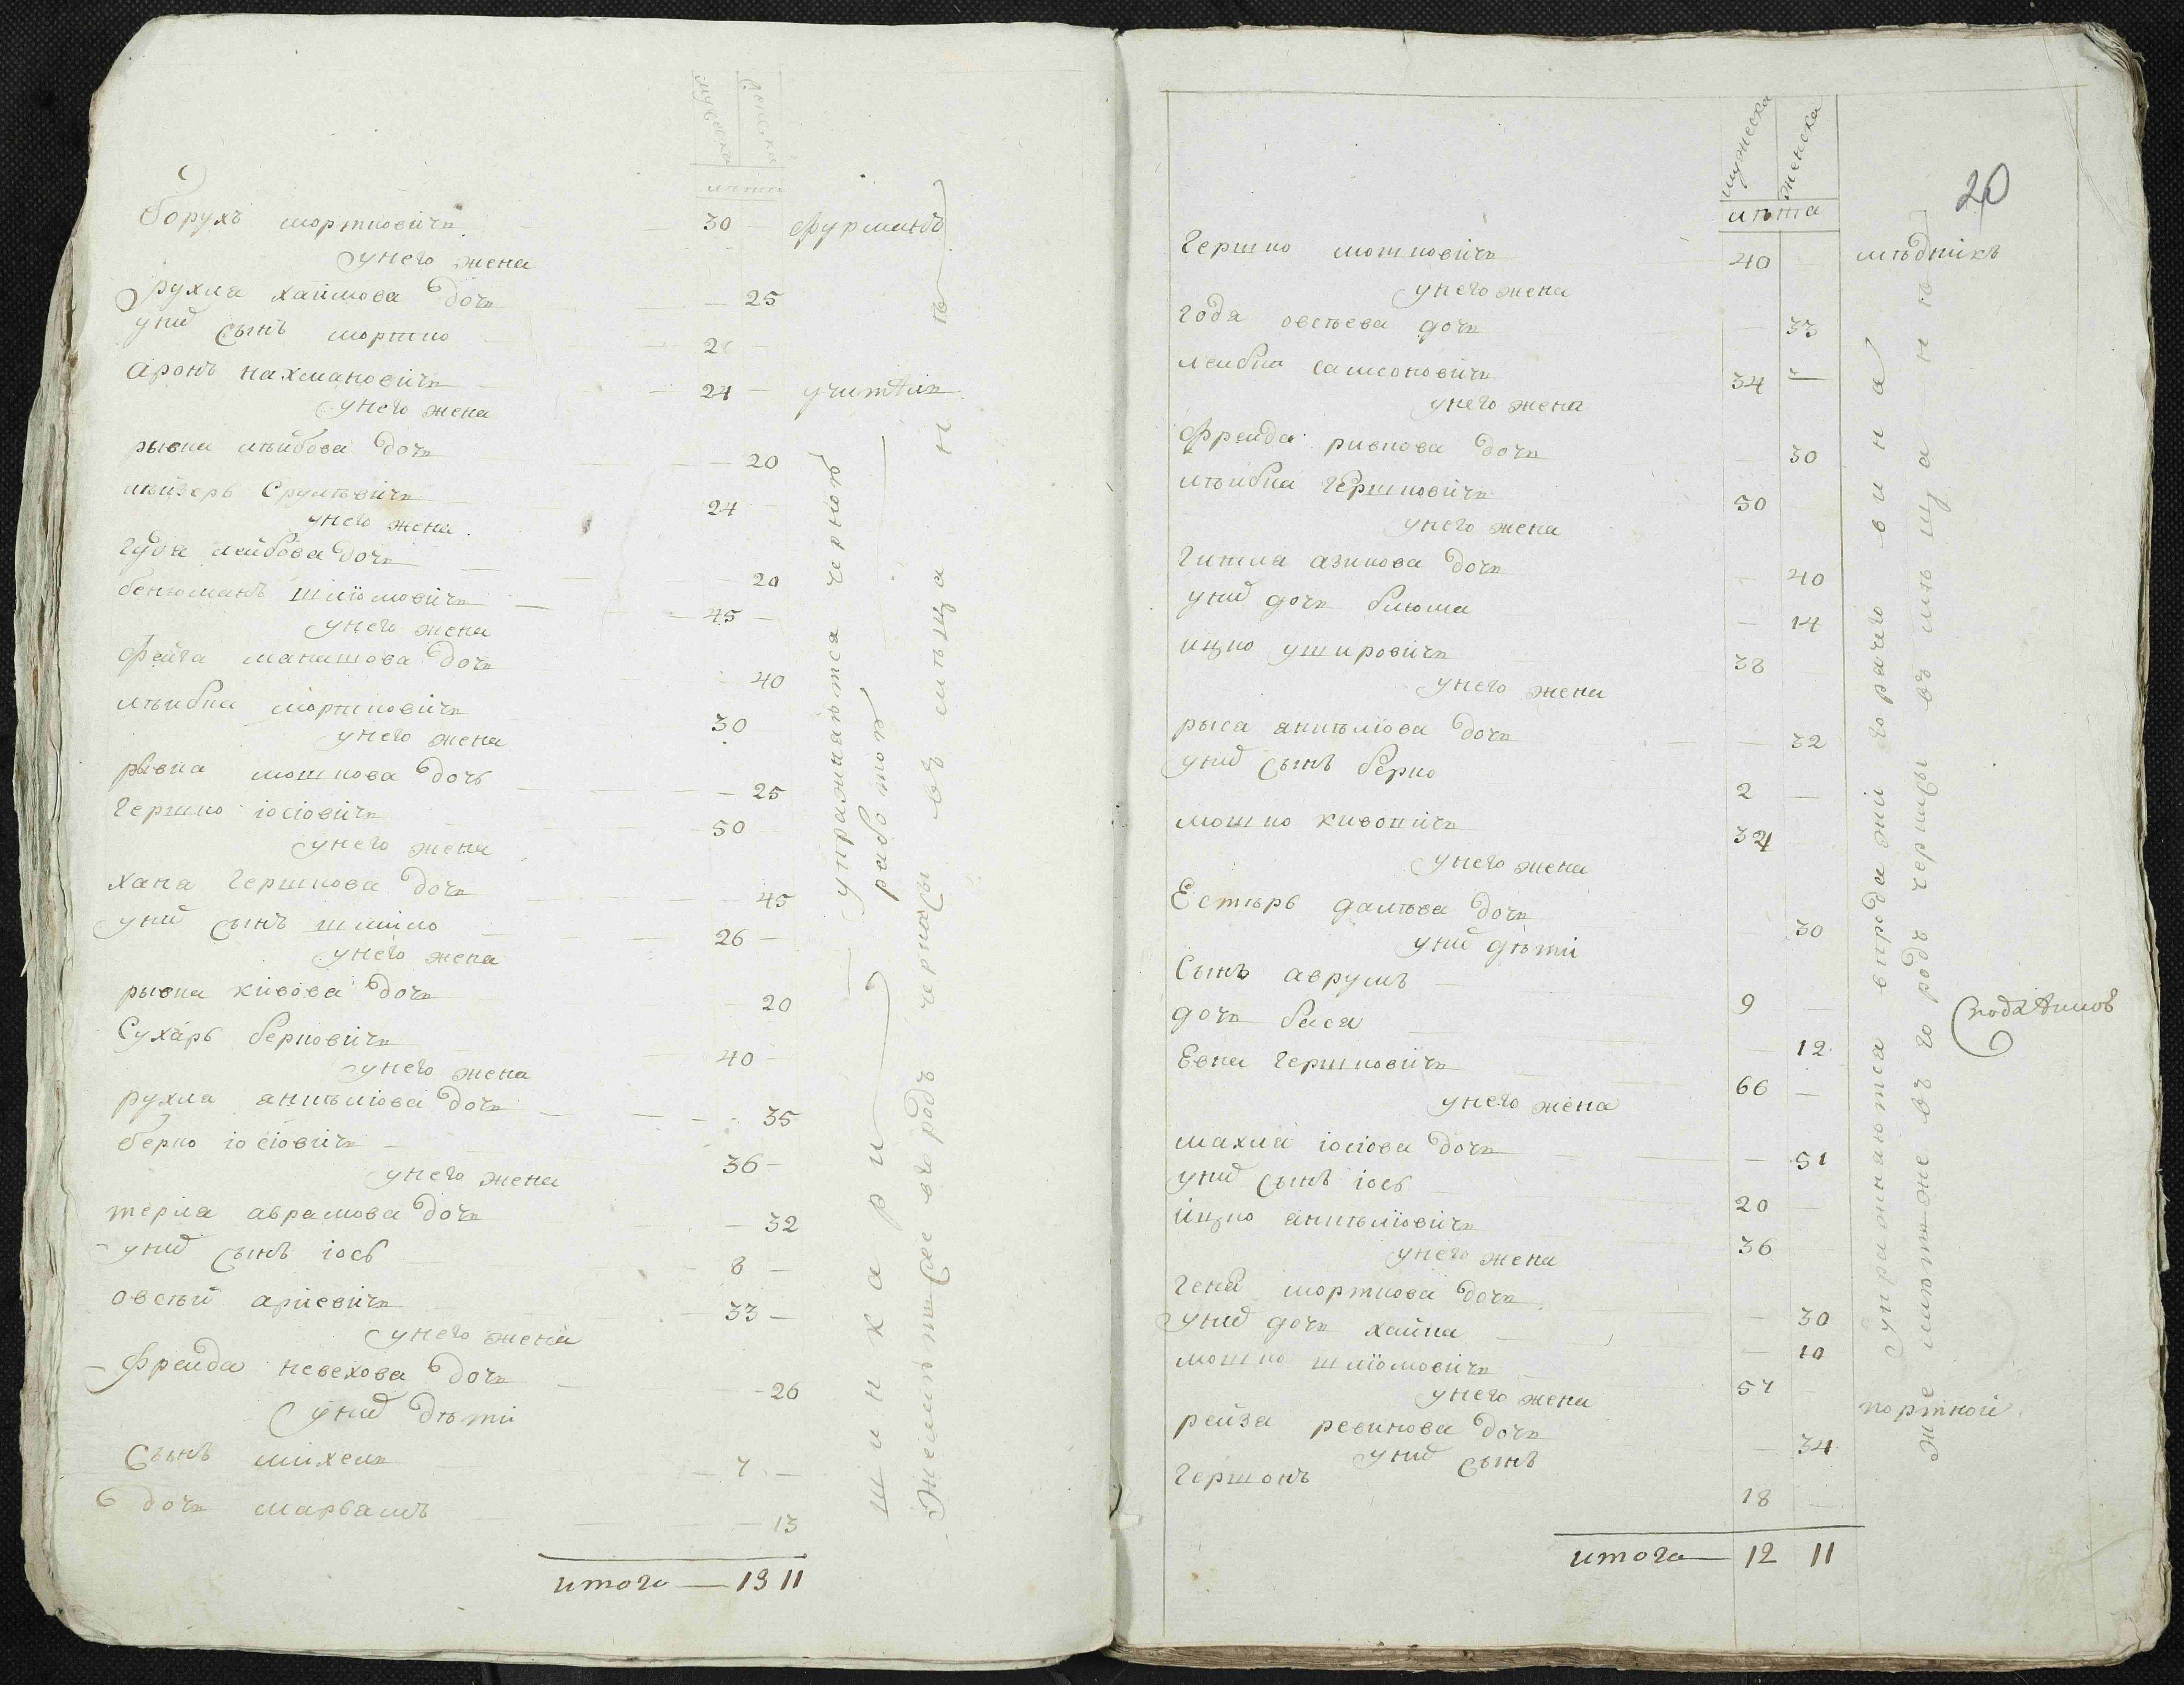 мужеска
женска
лѣта
борухъ мортковичъ 30 фурманъ
унего жена
рухля хаимова дочь 25
унихъ сынъ мортко 2
аронъ нахмановичъ 24 учитель
унего жена
рывка лѣйбова дочь 20
лѣйзеръ Срулѣвичъ 24
унего жена
гудя лейбова дочь 20
бенюманъ шліомовичъ 45
унего жена
фейга манашова дочь 40
лѣибка мортковичъ 30
унего жена
рывка мошкова дочь 25
гершко іосіовичъ 50
унего жена
хана гершкова дочь 45
унихъ сынъ шміло 26
унего жена
рывка кивова дочь 20
Сухаръ берковичъ 40
унего жена
рухла анчѣліова дочь 35
берко іосіовичъ 36
унего жена
терла аврамова дочь 32
унихъ сынъ іось 8
овсѣй аріевичъ 33
унего жена
фреида невехова дочь 26
унихъ дѣти
Сынъ михель 7
дочь марьямъ 13
итого 13 11
упражняются черною
работою
шинкари
жемѣтъже въ городъ черницы въ мѣщаню
20
мужеска
женска
лѣта
гершко мошковичъ 40 мѣдникъ
унего жена
годя овсѣева дочь 33
леибка самсоновичъ 34
унего жена
фреида ривкова дочь 30
лѣибка гершковичъ 50
унего жена
гитля азикова дочь 40
унихъ дочь блюма 14
ицко ушировичъ 38
унего жена
рыса анчѣліова дочь 32
унихъ сынъ берко 2
мошко кивовичъ 32
унего жена
Естѣръ далѣва дочь 30
унихъ дѣти
Сынъ аврумъ 9
дочь бася 12
Евна гершковичъ 66
унего жена
махля іосіова дочь 51
унихъ сынъ іось 20
ицко анчѣліовичъ 36
унего жена
геня морткова дочь 30
унихъ дочь хайка 10
мошко шліомовичъ 57 портной
унего жена
рейза ревинова дочь 34
унихъ сынъ
гершонъ 18
итого 12 11
упражняются впродажи горячего вина
же въ городъ черницы въ мѣщаню